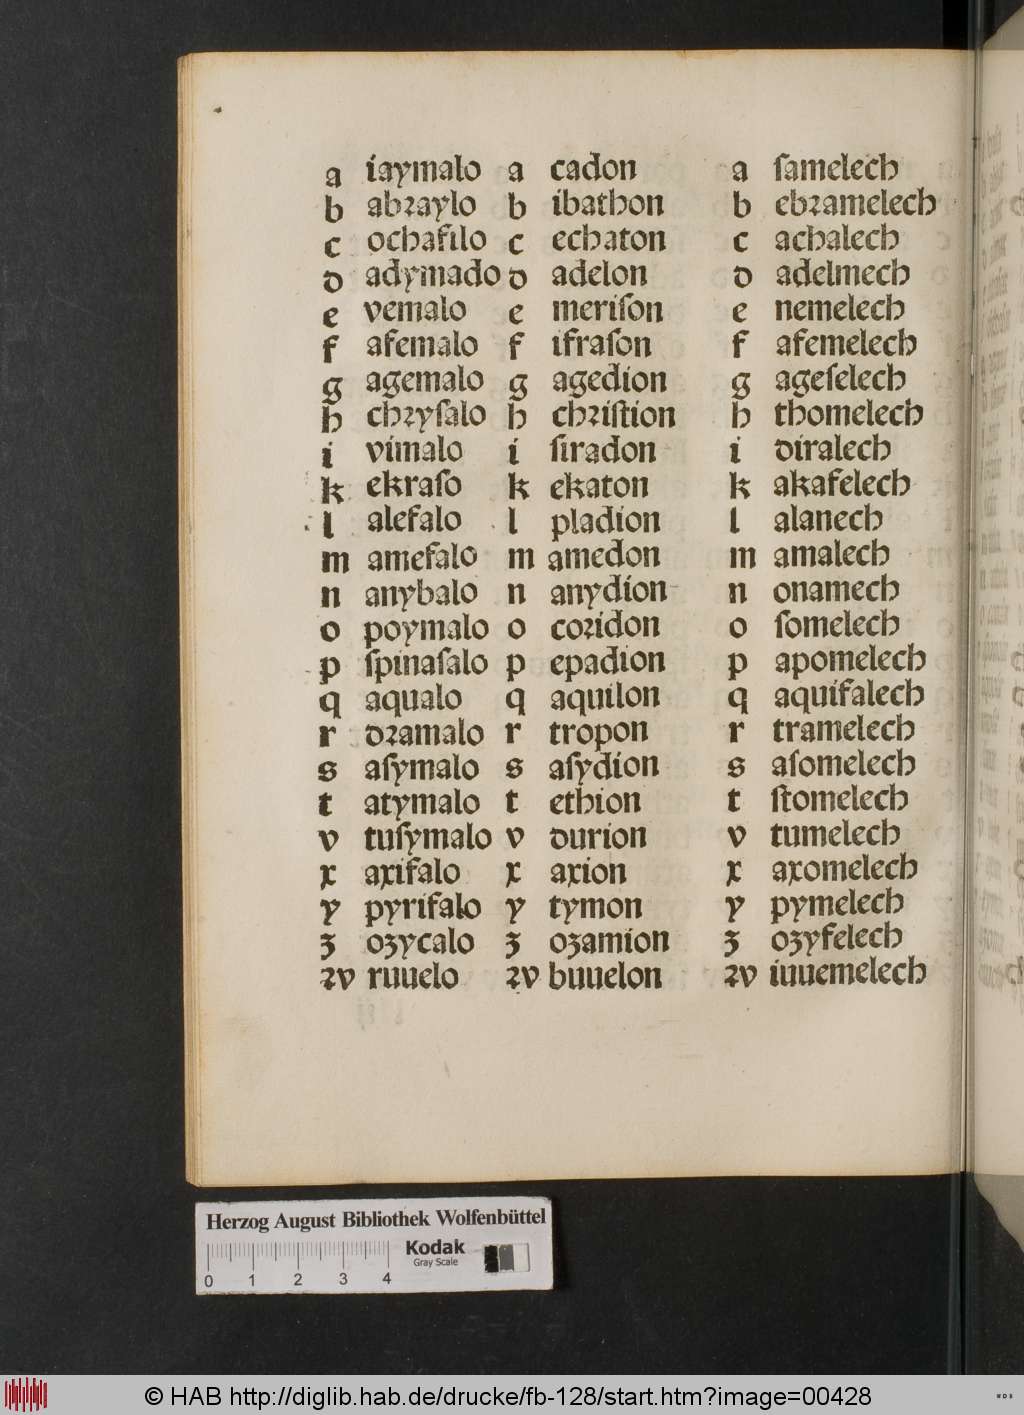 a iaymalo a cadon a ſamelech
b abꝛaylo b ibathon b ebꝛamelech
c ochafilo c echaton c achalech
d adymado d adelon d adelmech
e vemalo e meriſon e nemelech
f afemalo f ifraſon f afemelech
g agemalo g agedion g ageſelech
h chꝛyſalo h chꝛiſtion h thomelech
i vimalo i ſiradon i diralech
k ekraſo k ekaton k akafelech
l alefalo l pladion l alanech
m amefalo m amedon m amalech
n anybalo n anydion n onamech
o poymalo o coꝛidon o ſomelech
p ſpinaſalo p epadion p apomelech
q aqualo q aquilon q aquifalech
r dꝛamalo r tropon r tramelech
s aſymalo s aſydion s aſomelech
t atymalo t ethion t ſtomelech
v tuſymalo v durion v tumelech
x axifalo x axion x axomelech
y pyrifalo y tymon y pymelech
ʒ oʒycalo ʒ oʒamion ʒ oʒyfelech
ꝛv ruuelo ꝛv buuelon ꝛv iuuemelech
Herzog August Bibliothek Wolfenbüttel
Kodak
Gray Scale
0 1 2 3 4
© HAB http://diglib.hab.de/drucke/fb-128/start.htm?image=00428
WDB